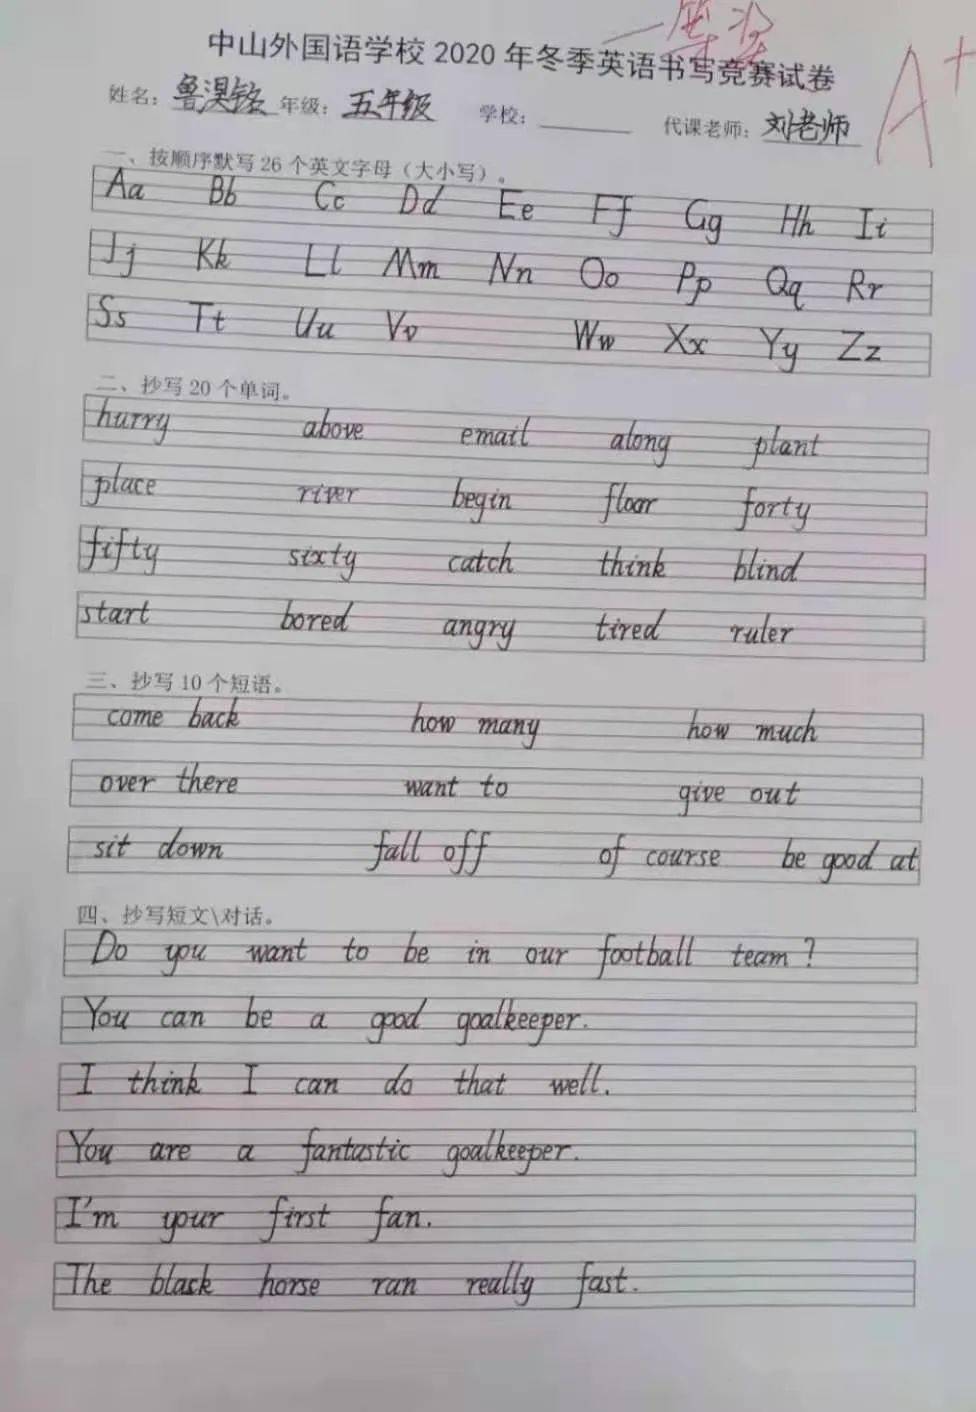 一等奖
A+
中山外国语学校 2020 年冬季英语书写竞赛试卷
姓名：鲁淏铭 年级：五年级 学校： 代课老师：刘老师
一、按顺序默写26个英文字母（大小写）。
Aa Bb Cc Dd Ee Ff Gg Hh Ii
Jj Kk Ll Mm Nn Oo Pp Qq Rr
Ss Tt Uu Vv Ww Xx Yy Zz
二、抄写20个单词。
hurry above email along plant
place river begin floor forty
fifty sixty catch think blind
start bored angry tired ruler
三、抄写10个短语。
come back how many how much
over there want to give out
sit down fall off of course be good at
四、抄写短文\对话。
Do you want to be in our football team?
You can be a good goalkeeper.
I think I can do that well.
You are a fantastic goalkeeper.
I'm your first fan.
The black horse ran really fast.